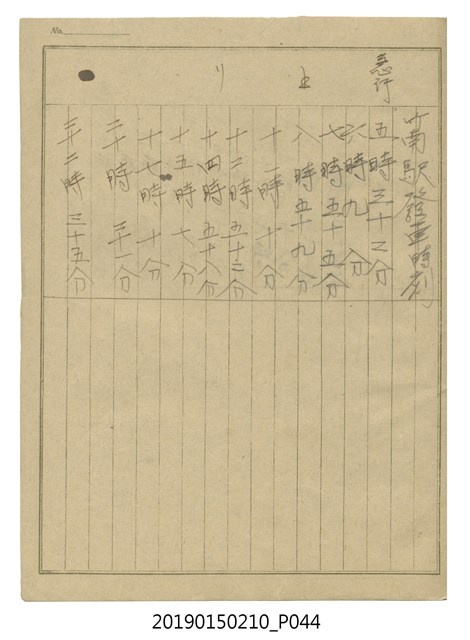 No.
竹南駅發車時刻
急行
五時三十二分
六時九分
七時五十五分
上 八時五十九分
十一時十分
十二時五十二分
リ 十四時五十八分
十五時七分
十七時十分
二十時三十一分
二十二時三十五分
20190150210_P044